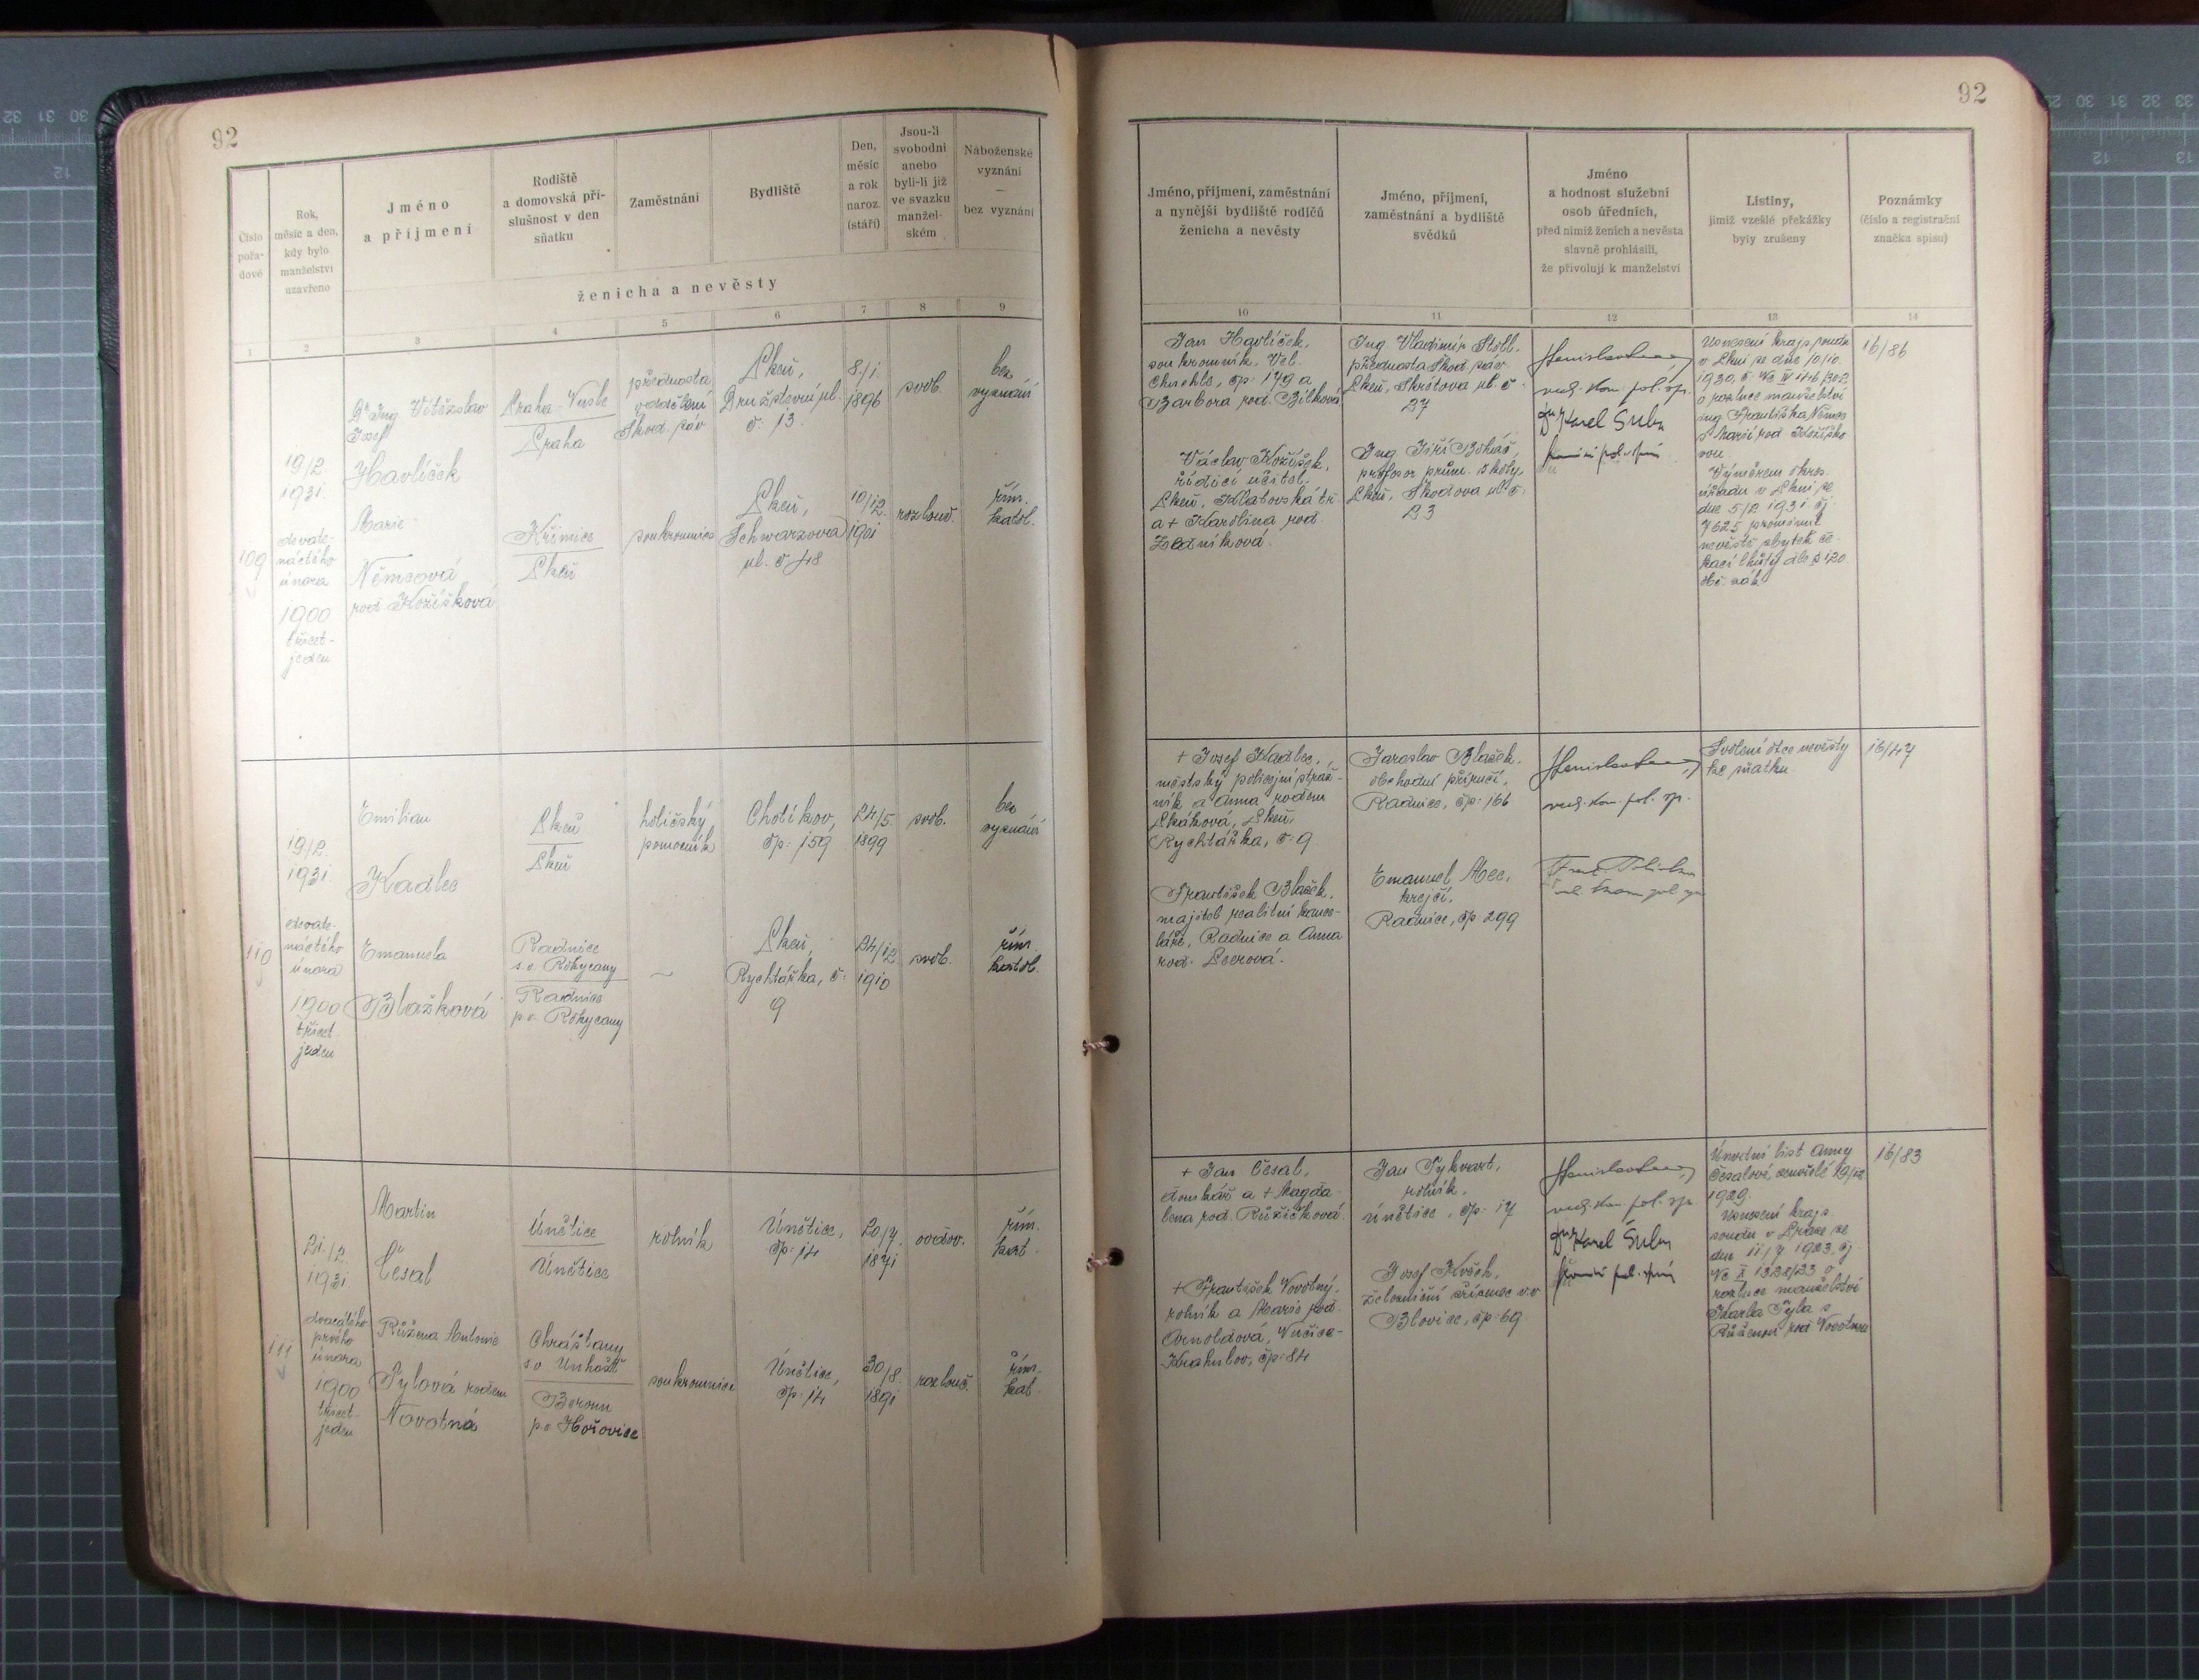 92
Číslo
pořa-
dové
Rok,
měsíc a den,
kdy bylo
manželství
uzavřeno
Jméno
a příjmení
Rodiště
a domovská pří-
slušnost v den
sňatku
Zaměstnání
Bydliště
Den,
měsíc
a rok
naroz.
(stáří)
Jsou-li
svobodni
anebo
byli-li již
ve svazku
manžel-
ském
Náboženské
vyznání
—
bez vyznání
ženicha a nevěsty
1 2 3 4 5 6 7 8 9
109
19/2.
1931.
devate-
náctého
února
1900
třicet-
jeden
Dr Ing Vítězslav
Josef
Havlíček
Praha-
Praha
přednosta
oddělení
Škod. záv
Plzeň,
Družstevní ul.
č. 13.
8./1.
1896
svob.
bez
vyznání
Marie
Němcová
roz. Kožíšková
Křimice
Plzeň
soukromnice
Plzeň,
Schwarzova
ul. č 48
10/12.
1901
rozlouč.
řím.
katol.
110
19./2
1931.
devate-
náctého
února
1900
třicet
jeden
Emilian
Kadlec
Plzeň
Plzeň
holičský
pomocník
Chotíkov,
čp: 159
24/5.
1899
svob.
bez
vyznání
Emanuela
Blažková
Radnice
s.o. Rokycany
Radnice
p.o. Rokycany
—
Plzeň,
Rychtářka, č:
9
24/12
1910
svob.
řím.
katol.
111
21./2
1931
dvacátého
prvého
února
1900
třicet-
jeden
Martin
Česal
Únětice
Únětice
rolník
Únětice,
čp: 14
20/7.
1871
ovdov.
řím.
kat.
Růžena Antonie
Pylová rozem
Novotná
Chrášťany
s.o Unhošť
Beroun
p.o Hořovice
soukromnice
Únětice,
čp: 14
30/8.
1891
rozlouč.
řím.
kat.
92
Jméno, příjmení, zaměstnání
a nynější bydliště rodičů
ženicha a nevěsty
Jméno, příjmení,
zaměstnání a bydliště
svědků
Jméno
a hodnost služební
osob úředních,
před nimiž ženich a nevěsta
slavně prohlásili,
že přivolují k manželství
Listiny,
jimiž vzešlé překážky
byly zrušeny
Poznámky
(číslo a registrační
značka spisu)
10 11 12 13 14
Jan Havlíček,
soukromník, Vel.
Chuchle, čp: 179 a
Barbora rod. Bílková
Václav Kožíšek,
řídící učitel.
Plzeň, Klatovská tř.
a + Karolina rod.
Zedníková.
Ing. Vladimír
přednosta Škod. záv
Plzeň, Skrétova ul. č.
27
Ing Jiří
profesor prům. školy,
Plzeň, Škodova ul č:
23
rad. kom. pol. sp.
Dr Karel
Usnesení kraj. soudu
v Plzni ze dne 10/10.
1930, č. Nc IV
o rozluce manželství
ing Františka Němce
s Marií rod Kožíško-
vou.
Výměrem okres.
úřadu v Plzni ze
dne 5/2 1931 čj
7625 prominut
nevěstě zbytek če-
kací lhůty dle § 120.
obč. zák
16/86
+ Josef Kadlec,
městský policejní stráž-
ník a Anna rozem
Plzeň,
Rychtářka, č: 9
František Blažek,
majitel realitní kance-
láře, Radnice a Anna
rod.
Jaroslav Blažek,
obchodní příručí,
Radnice, čp: 166
Emanuel Mec,
krejčí,
Radnice, čp. 299
rad. kom. pol. sp.
Svolení otce nevěsty
ke sňatku
16/47
+ Jan Česal,
domkář a + Magda-
lena rod. Růžičková.
+ František Novotný,
rolník a Marie rod.
Arnoldová, Nučice-
čp: 84
Jan
rolník,
Únětice, čp. 17
Josef
železniční zřízenec v.v
Blovice, čp: 69
rad. kom. pol. sp.
Dr Karel
Úmrtní list Anny
Česalové, zemřelé 29/12
1929.
Usnesení kraj.
soudu v Praze ze
dne 11./7 1923, čj
rozluce manželství
Karla Pyla s
Růženou rod Novotnou
16/83